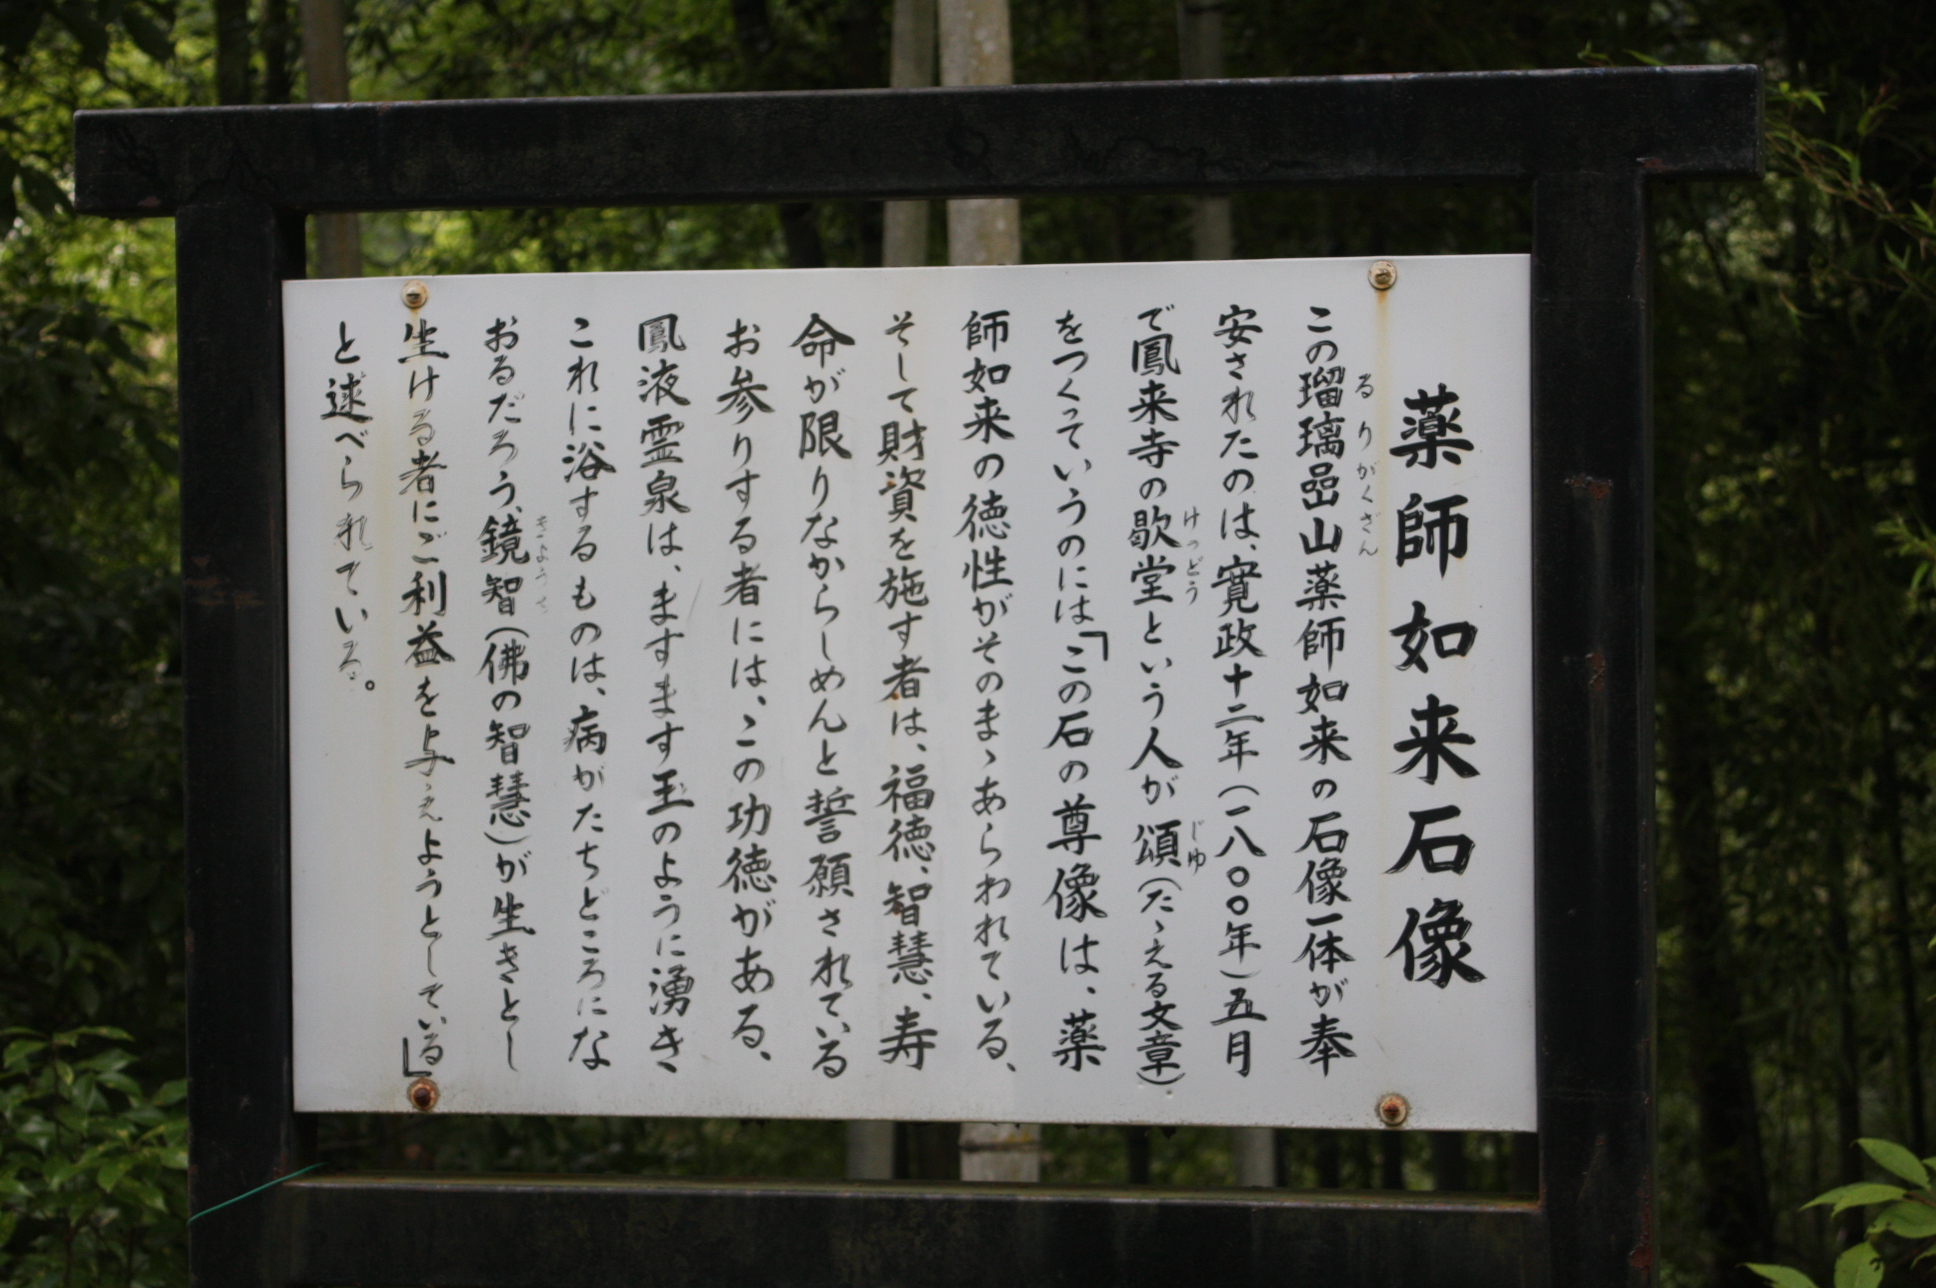 薬師如来石像
この瑠璃嵒山薬師如来の石像一体が奉
るりがくざん
安されたのは、寛政十二年(一八〇〇年)五月
で鳳来寺の歇堂という人が頌(たゝえる文章)
けつどう
じゆ
をつくっていうのには「この石の尊像は、薬
師如来の徳性がそのまゝあらわれている、
そして財資を施す者は、福徳、智慧、寿
命が限りなからしめんと誓願されている
お参りする者には、この功徳がある、
鳳液霊泉は、ますます玉のように湧き
これに浴するものは、病がたちどころにな
おるだろう、鏡智(佛の智慧)が生きとし
きようち
生ける者にご利益を与えようとしている」
と述べられている。